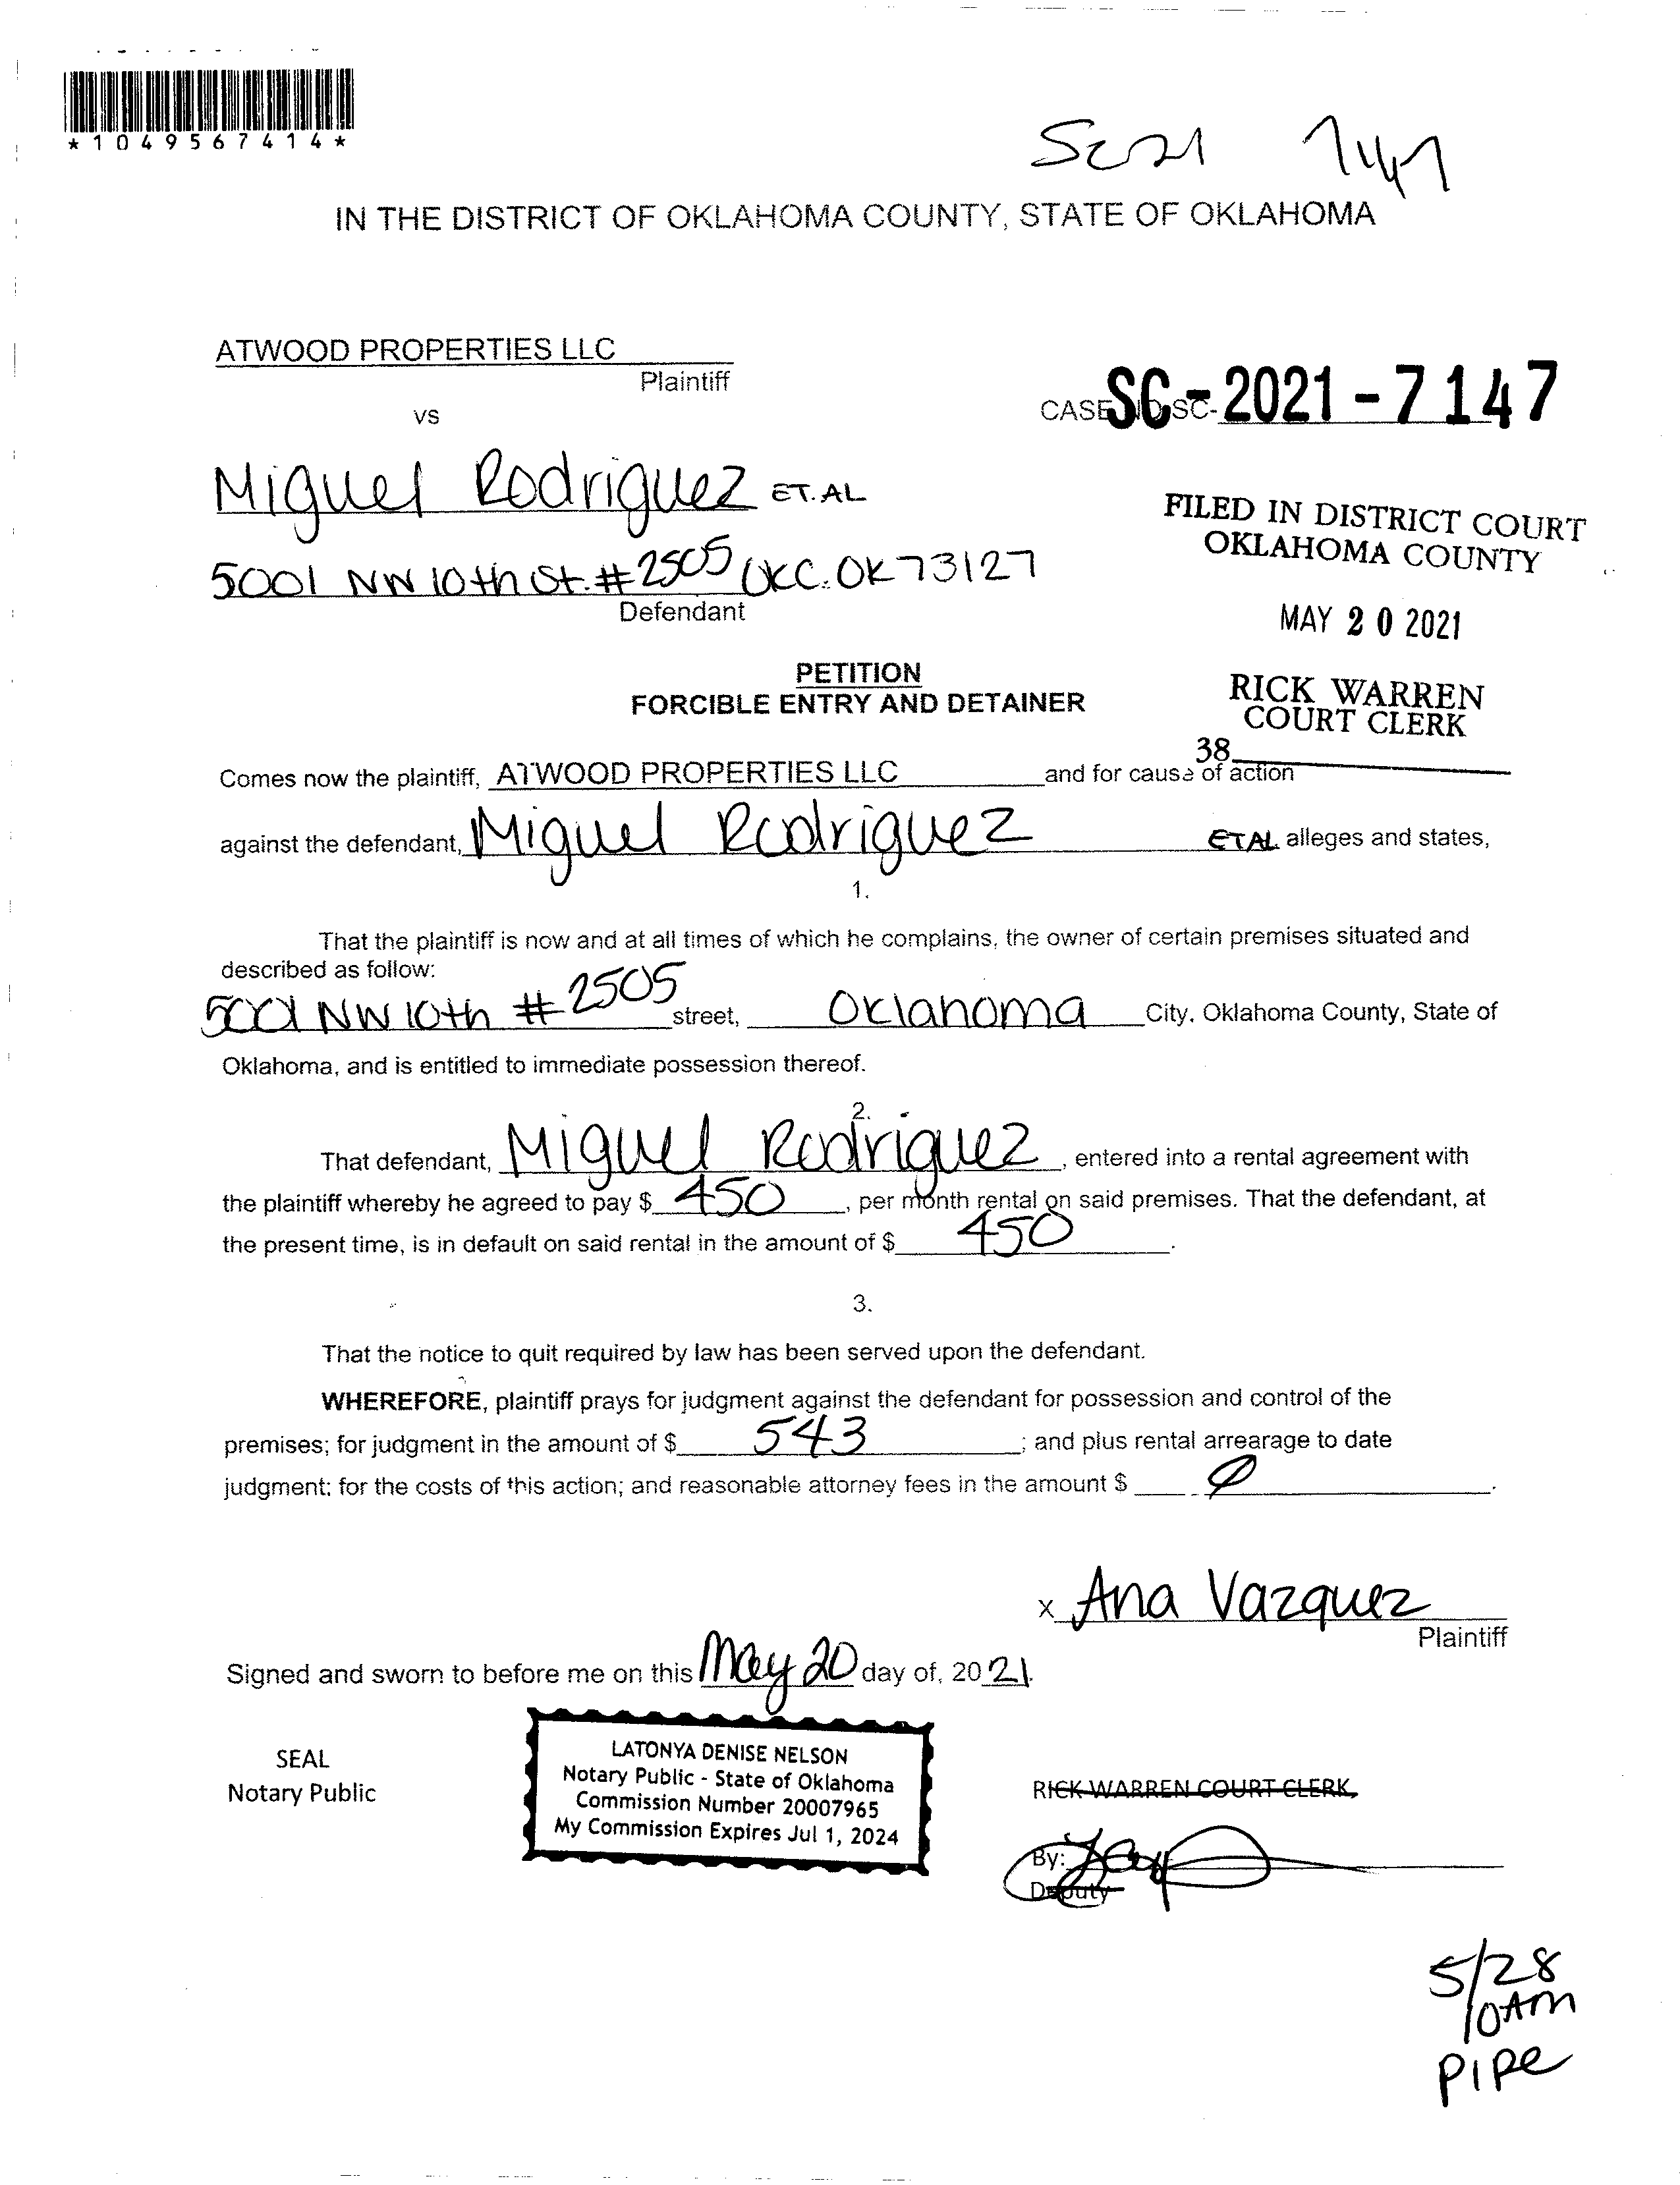 *1049567414*
SC21 7147
IN THE DISTRICT OF OKLAHOMA COUNTY, STATE OF OKLAHOMA
ATWOOD PROPERTIES LLC
Plaintiff
vs
CASE NO SC- SC-2021-7147
Miguel Rodriguez ET.AL
5001 NW 10th St. #2505 OKC. OK 73127
Defendant
FILED IN DISTRICT COURT
OKLAHOMA COUNTY
MAY 20 2021
RICK WARREN
COURT CLERK
38
PETITION
FORCIBLE ENTRY AND DETAINER
Comes now the plaintiff, ATWOOD PROPERTIES LLC and for cause of action
against the defendant, Miguel Rodriguez ETAL alleges and states,
1.
That the plaintiff is now and at all times of which he complains, the owner of certain premises situated and
described as follow:
5001 NW 10th #2505 street, Oklahoma City, Oklahoma County, State of
Oklahoma, and is entitled to immediate possession thereof.
2.
That defendant, Miguel Rodriguez, entered into a rental agreement with
the plaintiff whereby he agreed to pay $ 450, per month rental on said premises. That the defendant, at
the present time, is in default on said rental in the amount of $ 450.
3.
That the notice to quit required by law has been served upon the defendant.
WHEREFORE, plaintiff prays for judgment against the defendant for possession and control of the
premises; for judgment in the amount of $ 543; and plus rental arrearage to date
judgment; for the costs of this action; and reasonable attorney fees in the amount $ Ø.
x Ana Vazquez
Plaintiff
Signed and sworn to before me on this May 20 day of, 2021.
SEAL
Notary Public
LATONYA DENISE NELSON
Notary Public - State of Oklahoma
Commission Number 20007965
My Commission Expires Jul 1, 2024
RICK WARREN COURT CLERK
By:
Deputy
5/28
10AM
PIPE